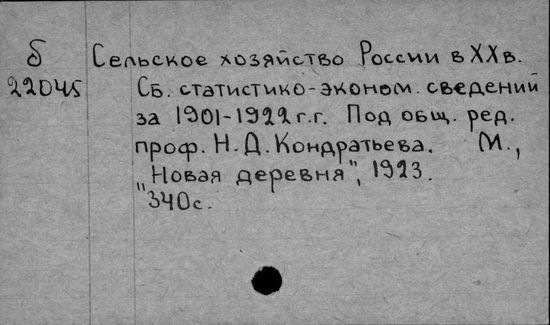 б Сельское хозяйство России в XX в.
22045 Сб. статистико-эконом. сведений
за 1901-1922 г.г. Под общ. ред.
проф. Н.Д. Кондратьева. М.,
"Новая деревня", 1923.
340с.